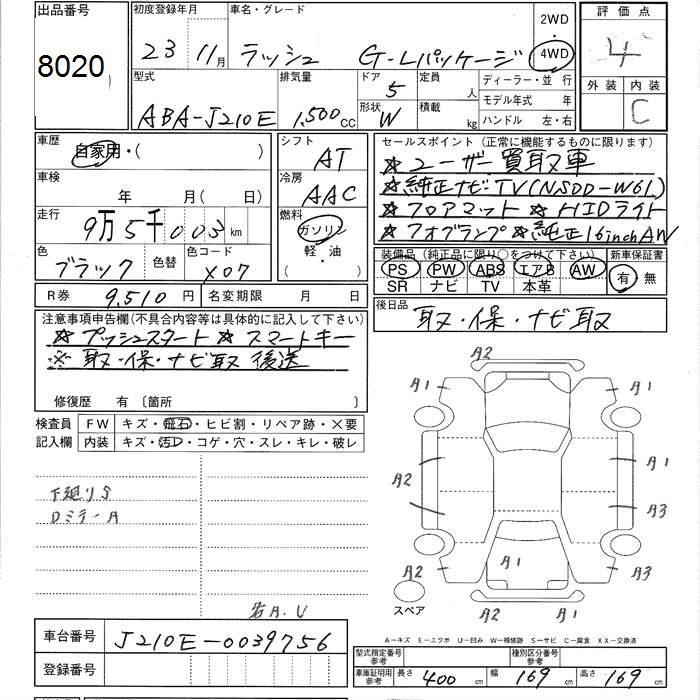 出品番号 8020
初度登録年月 23 11月
車名・グレード ラッシュ G-Lパッケージ
2WD 4WD
評価点 4
外装 内装 C
型式 ABA-J210E
排気量 1,500 CC
ドア 5 形状 W
定員 人 積載 kg
ディーラー・並行
モデル年式 年
ハンドル 左・右
車歴 自家用・( )
車検 年 月( 日)
走行 9万5千003km
色 ブラック 色替 色コード X07
シフト AT
冷房 AAC
燃料 ガソリン 軽・油
セールスポイント(正常に機能するものに限ります)
☆ユーザー買取車
☆純正ナビ・TV(NSDD-W61)
☆フロアマット ☆HIDライト
☆フォグランプ ☆純正16inchAW
装備品(純正品に限り○をつけて下さい) 新車保証書
PS PW ABS エアB AW 有・無
SR ナビ TV 本革
R券 9,510円 名変期限 月 日
後日品 取・保・ナビ取
注意事項申告欄(不具合内容等は具体的に記入して下さい)
☆プッシュスタート ☆スマートキー
※取・保・ナビ取 後送
修復歴 有〔箇所 〕
検査員 FW キズ・飛石・ヒビ割・リペア跡・X要
記入欄 内装 キズ・汚レ・コゲ・穴・スレ・キレ・破レ
A2
A1 A1
A1
A2
A3
A1
A2 A3
A2
スペア
下廻りS
DミラーA
A.U
車台番号 J210E-0039756
登録番号
A-キズ E-エクボ U-凹み W-補修跡 S-サビ C-腐食 XX-交換済
型式指定番号 参考 種別区分番号 参考
車庫証明用 参考 長さ 400 cm 幅 169 cm 高さ 169 cm